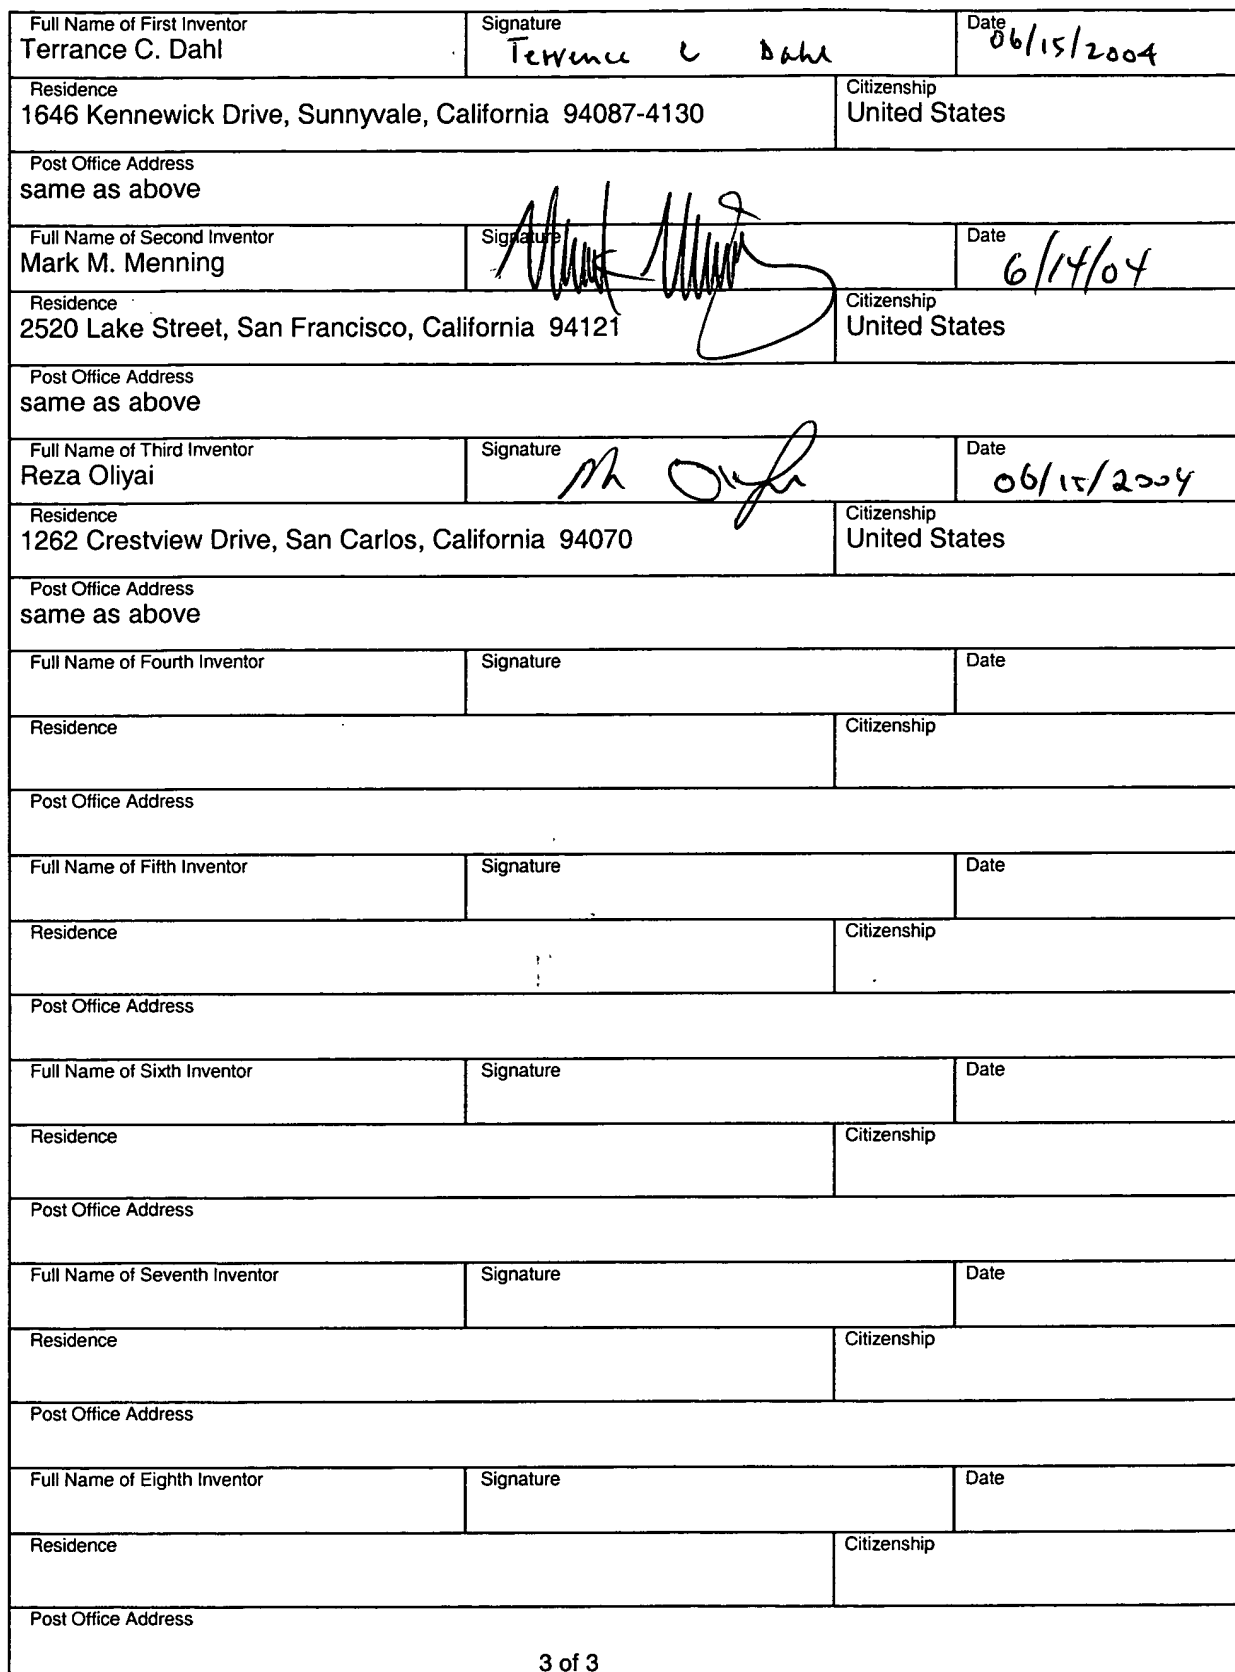 Full Name of First Inventor Signature Date
Terrance C. Dahl Terrence C Dahl 06/15/2004
Residence Citizenship
1646 Kennewick Drive, Sunnyvale, California 94087-4130 United States
Post Office Address
same as above
Full Name of Second Inventor Signature Date
Mark M. Menning 6/14/04
Residence Citizenship
2520 Lake Street, San Francisco, California 94121 United States
Post Office Address
same as above
Full Name of Third Inventor Signature Date
Reza Oliyai 06/15/2004
Residence Citizenship
1262 Crestview Drive, San Carlos, California 94070 United States
Post Office Address
same as above
Full Name of Fourth Inventor Signature Date
Residence Citizenship
Post Office Address
Full Name of Fifth Inventor Signature Date
Residence Citizenship
Post Office Address
Full Name of Sixth Inventor Signature Date
Residence Citizenship
Post Office Address
Full Name of Seventh Inventor Signature Date
Residence Citizenship
Post Office Address
Full Name of Eighth Inventor Signature Date
Residence Citizenship
Post Office Address
3 of 3